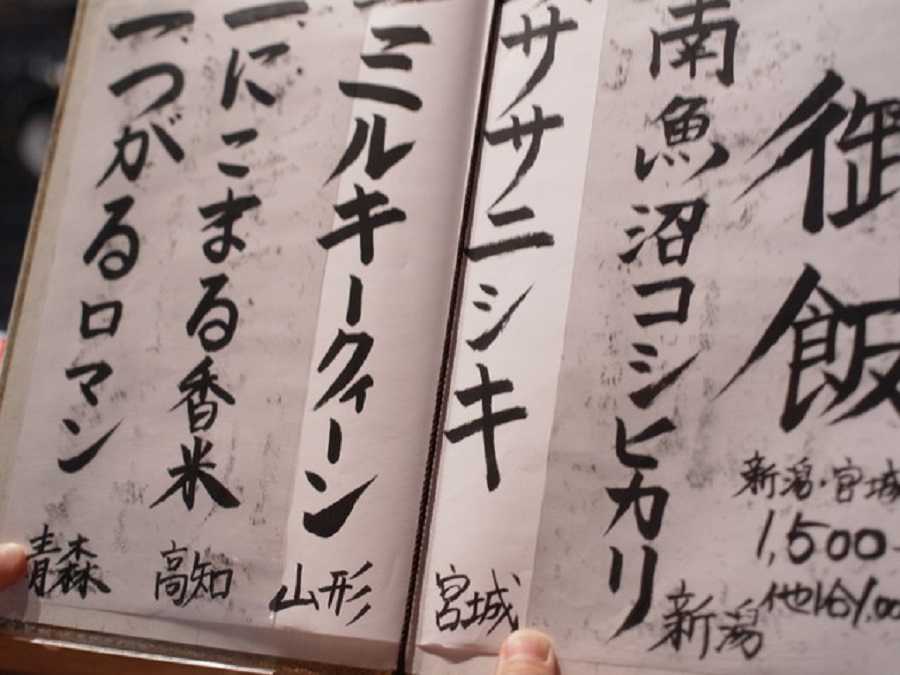 御飯
新潟・宮城
1,500
南魚沼コシヒカリ
新潟
ササニシキ
宮城
一ミルキークィーン
山形
一にこまる香米
高知
一つがるロマン
青森